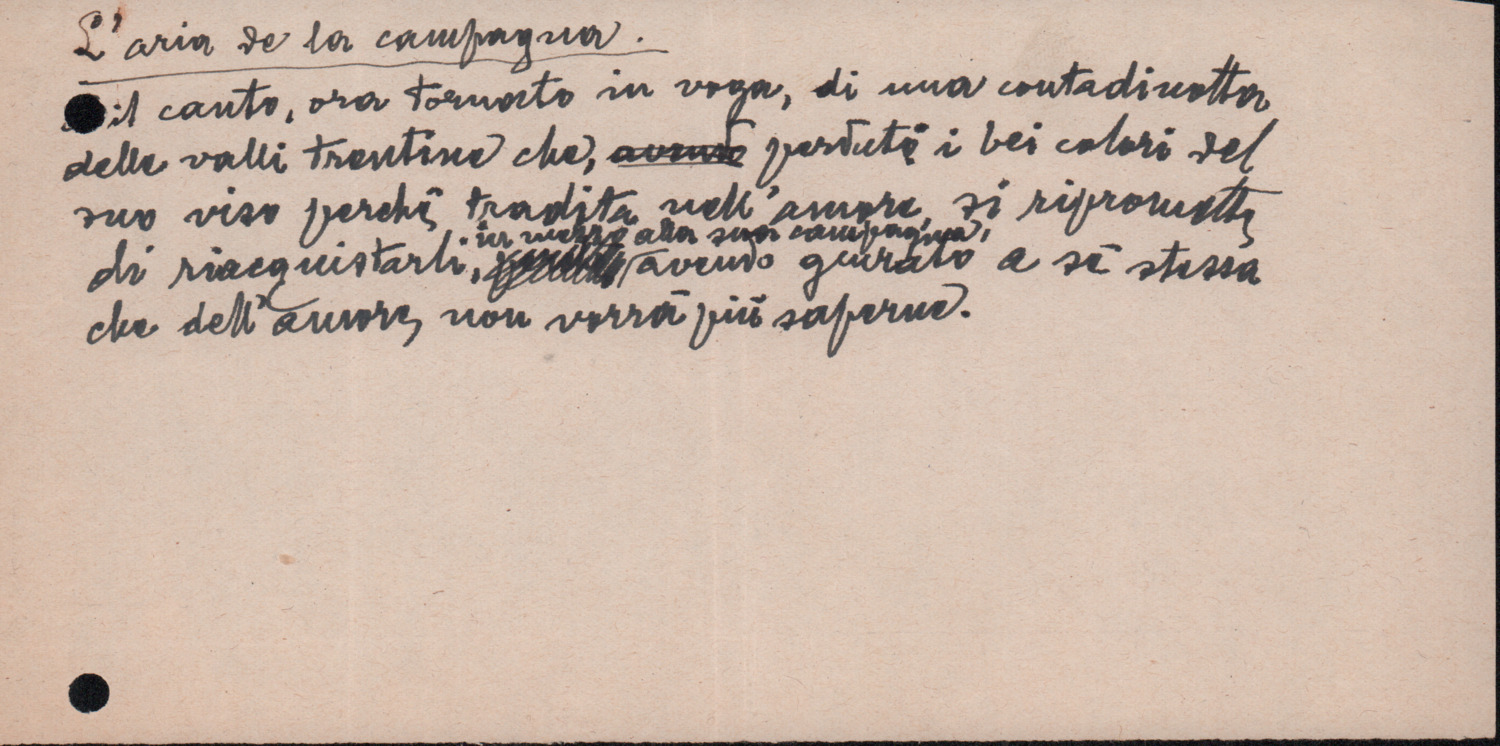 L'aria de la campagna.
il canto, ora tornato in voga, di una contadinotta
delle valli trentine che, avendo perduti i bei colori del
suo viso perchè tradita nell'amore, si ripromette
in mezzo alla sua campagna,
di riacquistarli, avendo giurato a sè stessa
che dell'amore, non vorrà più saperne.